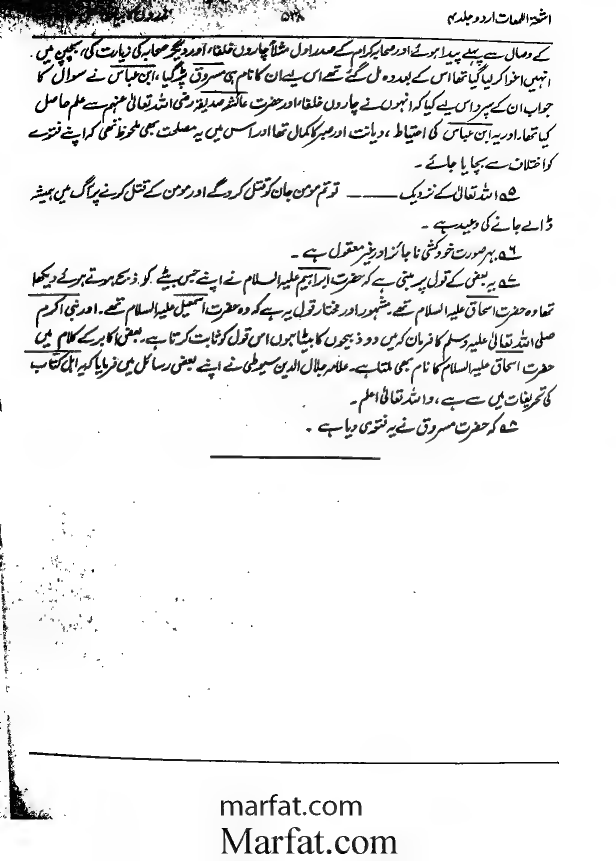 اشعۃ اللمعات اردو جلد ۴ ۵۲۸ نذروں کا بیان
کے وصال سے پہلے پیدا ہوئے اور صحابہ کرام کے صدر اول مثلاً چاروں خلفاء اور دیگر صحابہ کی زیارت کی، بچپن میں
انہیں اغوا کر لیا گیا تھا اس کے بعد وہ مل گئے تھے اس لیے ان کا نام ہی مسروق پڑ گیا، ابن عباس نے سوال کا
جواب ان کے سپرد اس لیے کیا کہ انہوں نے چاروں خلفاء اور حضرت عائشہ صدیقہ رضی اللہ تعالیٰ عنہم سے علم حاصل
کیا تھا۔ اور یہ ابن عباس کی احتیاط، دیانت اور صبر کا کمال تھا اور اس میں یہ مصلحت بھی ملحوظ تھی کہ اپنے فتوے
کو اختلاف سے بچایا جائے۔
۵ اللہ تعالیٰ کے نزدیک ——— تو تم مومن جان کو قتل کرو گے اور مومن کے قتل کرنے پر آگ میں ہمیشہ
ڈالے جانے کی وعید ہے۔
۶ بہر صورت خودکشی ناجائز اور غیر معقول ہے۔
۷ یہ بعض کے قول پر مبنی ہے کہ حضرت ابراہیم علیہ السلام نے اپنے جس بیٹے کو ذبح ہوتے ہوئے دیکھا
تھا وہ حضرت اسحاق علیہ السلام تھے مشہور اور مختار قول یہ ہے کہ وہ حضرت اسمٰعیل علیہ السلام تھے۔ اور نبی اکرم
صلی اللہ تعالیٰ علیہ وسلم کا فرمان کہ میں دو ذبیحوں کا بیٹا ہوں اس قول کو ثابت کرتا ہے۔ بعض اکابر کے کلام میں
حضرت اسحاق علیہ السلام کا نام بھی ملتا ہے۔ علامہ جلال الدین سیوطی نے اپنے بعض رسائل میں فرمایا کہ یہ اہل کتاب
کی تحریفات میں سے ہے، واللہ تعالیٰ اعلم۔
۸ کہ حضرت مسروق نے یہ فتویٰ دیا ہے۔
marfat.com
Marfat.com